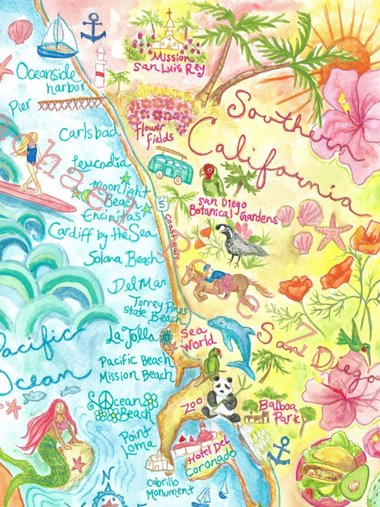 Oceanside
harbor
Pier
Mission
San Luis Rey
Southern
California
Carlsbad
Flower
fields
Leucadia
moonlight
Beach
Encinitas
Cardiff by the Sea
Solana Beach
San Diego
Botanical Gardens
Del Mar
Torrey Pines
State Beach
La Jolla
Sea
World
San Diego
Pacific
Ocean
Pacific Beach
Mission Beach
Ocean
Beach
Zoo
Balboa
Park
Point
Loma
Hotel Del
Coronado
Cabrillo
Monument